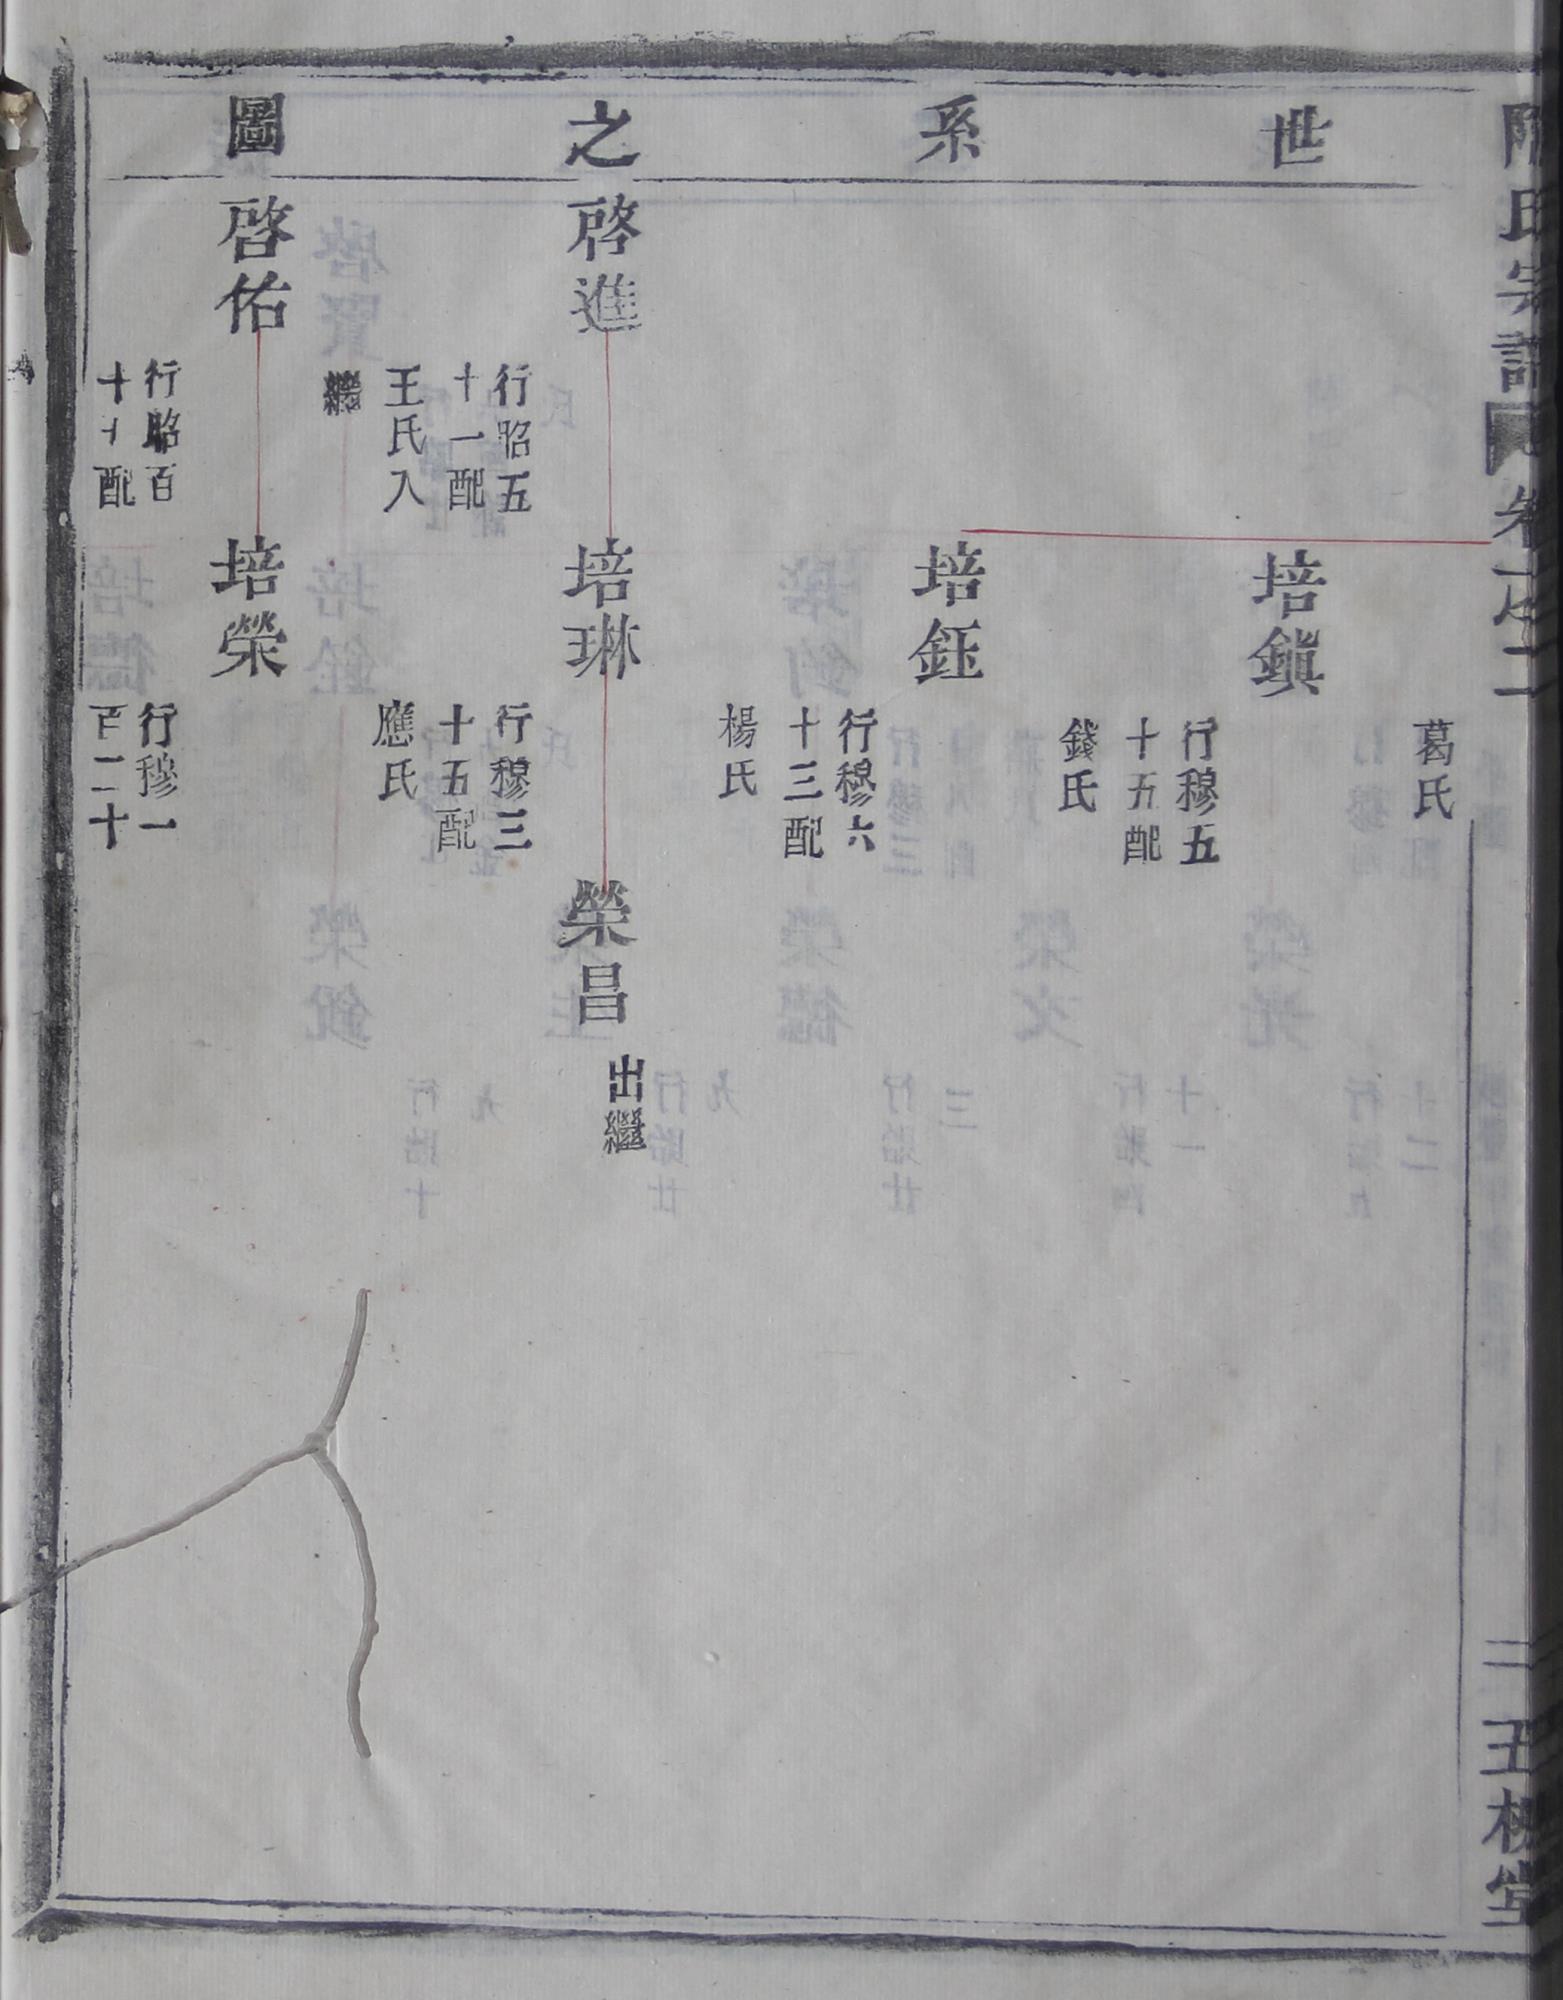 氏宗譜
卷之二
二
五桂堂
世系之圖
葛氏
培鎮
行穆五
十五配
錢氏
培鈺
行穆六
十三配
楊氏
啓進
行昭五
十一配
王氏入
繼
培琳
行穆三
十五配
應氏
榮昌
出繼
啓佑
行昭百
配
培榮
行穆一
百二十